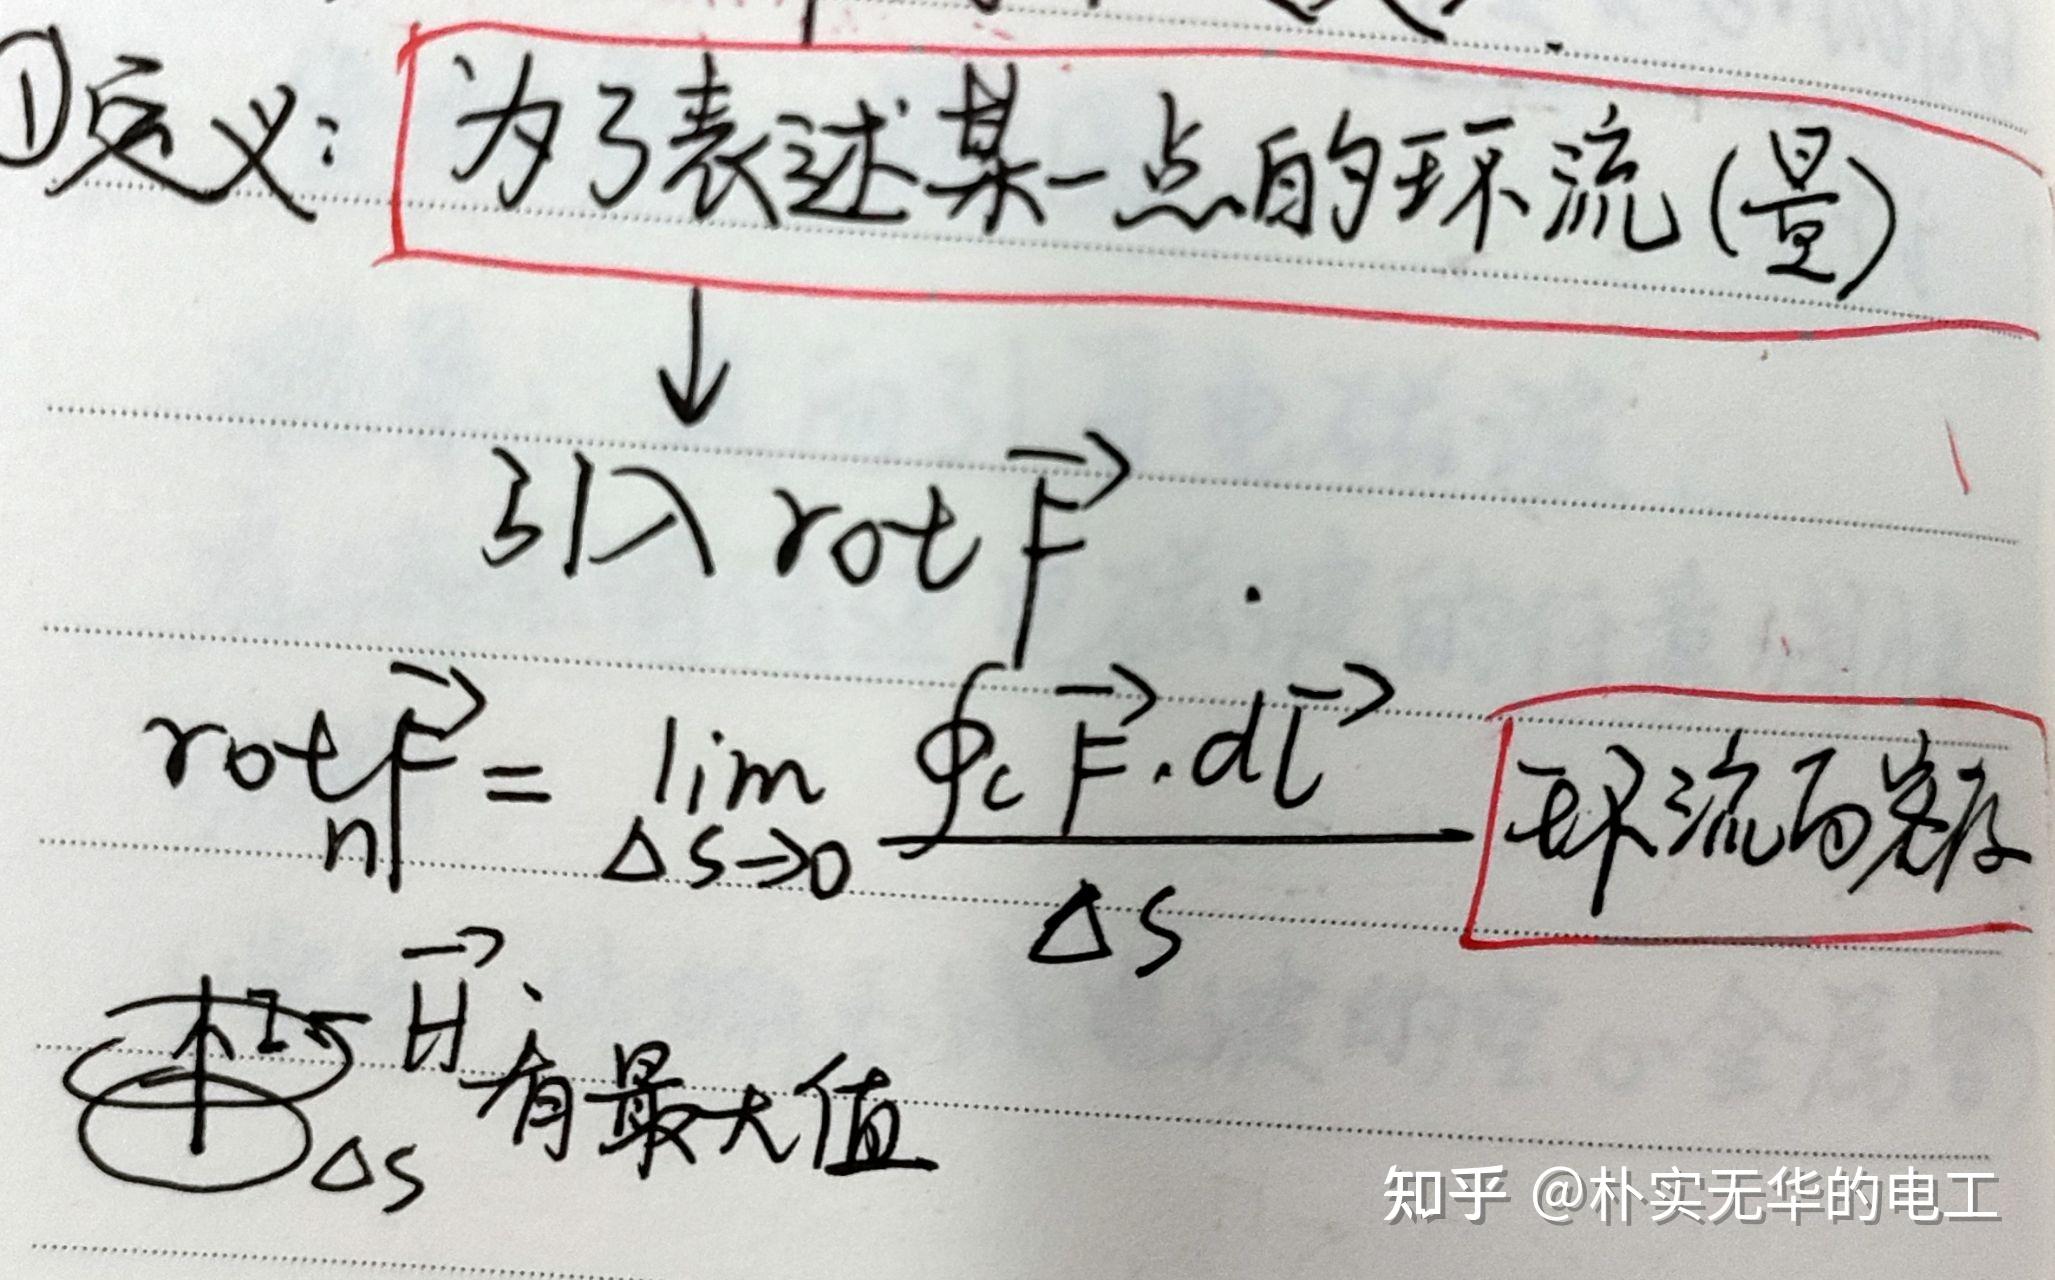 ①定义：为了表述某一点的环流(量)
↓
引入 rot F⃗.
rotₙF⃗ = lim_{ΔS→0} ∮c F⃗·dl⃗ / ΔS 环流面密度
I H⃗ 有最大值
ΔS
知乎 @朴实无华的电工